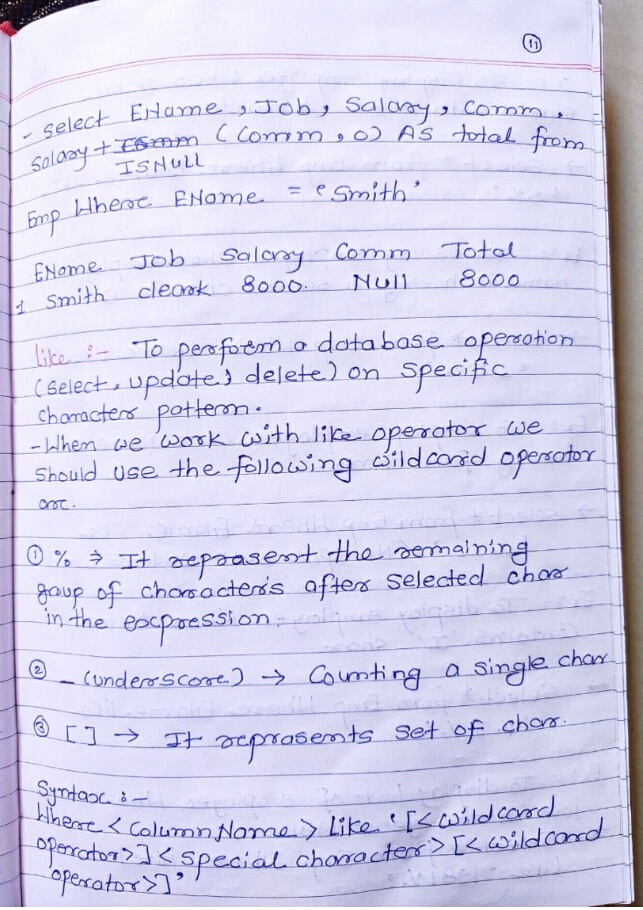 11
- select EName, Job, Salary, Comm,
Salary + ISNULL (Comm, 0) AS total from
Emp Where EName = 'Smith'
EName Job Salary Comm Total
1 Smith cleark 8000. Null 8000
Like :- To perform a database operation
(select, update, delete) on specific
character pattern.
- When we work with like operator we
should use the following wildcard operator
are.
① % ⇒ It reprasent the remaining
goup of character's after selected char
in the expression.
② _ (underscore) → Counting a single char
③ [ ] → It reprasents set of char.
Syntax :-
Where < Column Name > Like '[<wildcard
operator>]<special character>[<wildcard
operator>]'